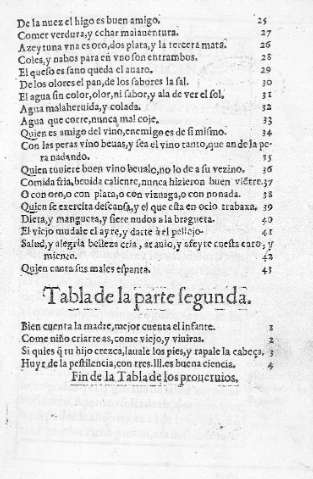 De la nuez el higo es buen amigo. 25
Comer verdura, y echar mala ventura. 27
Azeytuna vna es oro, dos plata, y la tercera mata. 26
Coles, y nabos para en vno son entrambos. 28
El queso es sano que da el auaro. 29
De los olores el pan, de los sabores la sal. 30
El agua sin color, olor, ni sabor, y a la de ver el sol, 31
Agua mal aheruida, y colada. 32
Agua que corre, nunca mal coje, 33
Quien es amigo del vino, enemigo es de si mismo. 34
Con las peras vino beuas, y sea el vino tanto, que ande la pe
ra nadando. 35
Quien tuuiere buen vino beualo, no lo de a su vezino. 36
Comida fria, beuida caliente, nunca hizieron buen viẽtre. 37
O con oro, o con plata, o con viznaga, o con nonada. 38
Quien se exercita descansa, y el que esta en ocio trabaxa. 39
Dieta, y mangueta, y siete nudos a la bragueta. 40
El viejo mudale el ayre, y darte ha el pellejo. 41
Salud, y alegria belleza cria, atauio, y afeyte cuesta caro, y
miente. 42
Quien canta sus males espanta. 43
Tabla de la parte segunda.
Bien cuenta la madre, mejor cuenta el infante. 1
Come niño criarte as, come viejo, y viuiras. 2
Si quies q̃ tu hijo crezca, lauale los pies, y rapale la cabeça, 3
Huyr de la pestilencia, con tres .lll. es buena ciencia. 4
Fin de la Tabla de los prouerbios.